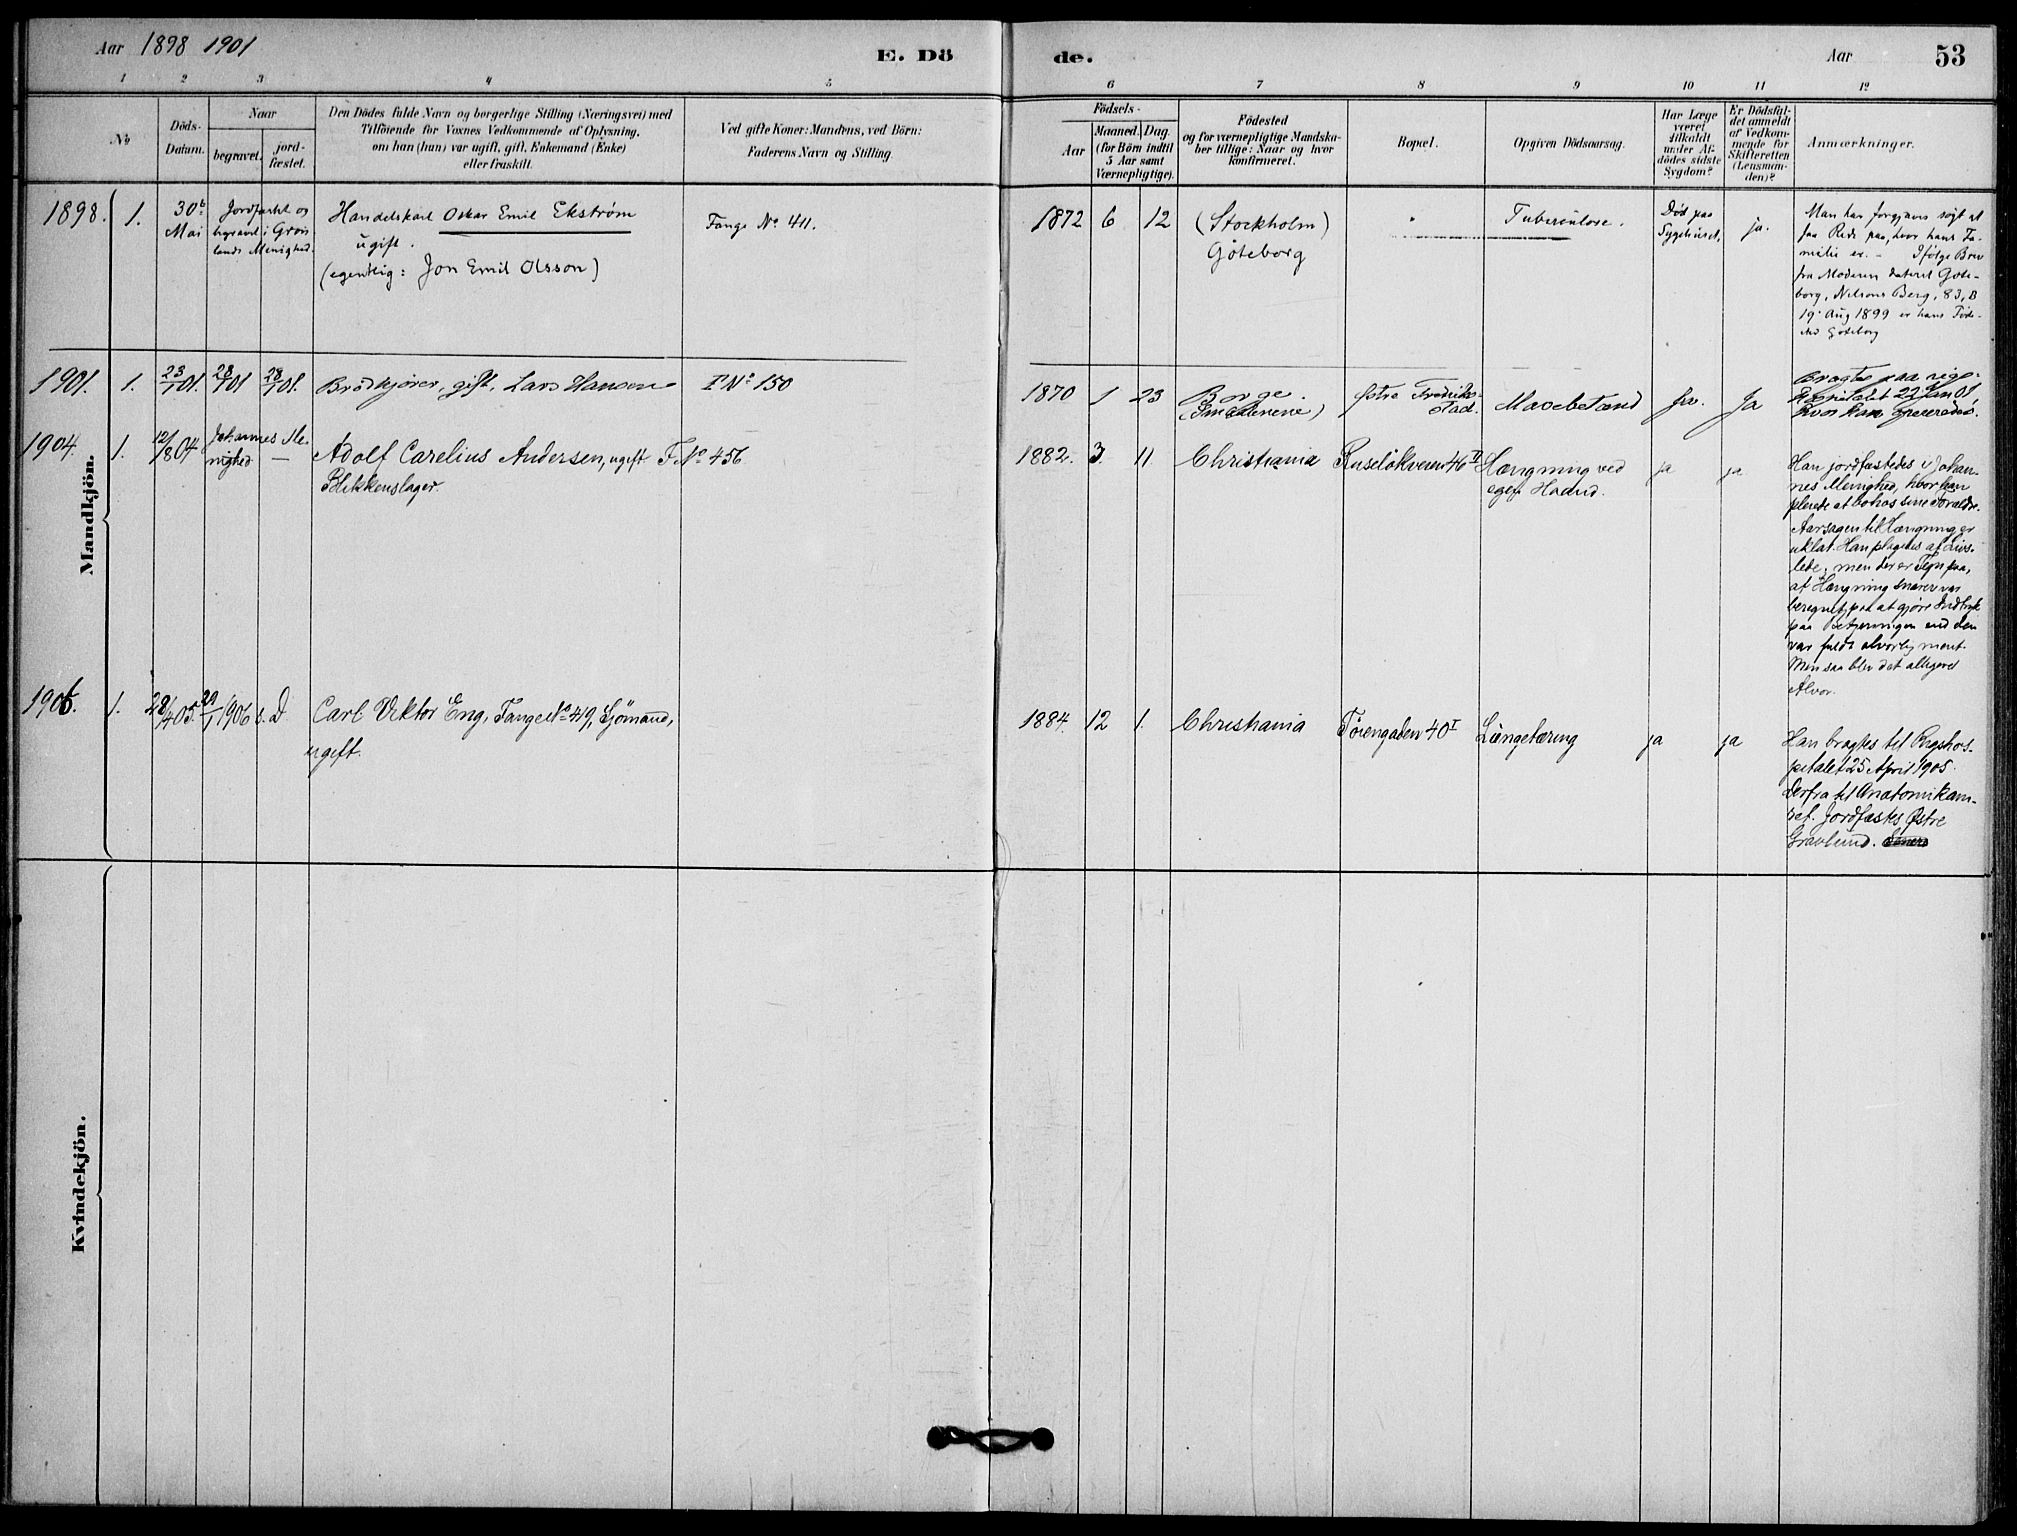 Aar 1898 1901
E. Dö
de.
Aar
53
1
2
3
4
5
6
7
8
9
10
11
12
No
Döds-
Datum.
Naar
begravet.
jord-
fæstet.
Den Dödes fulde Navn og borgerlige Stilling (Næringsvei) med
Tilföiende for Voxnes Vedkommende af Oplysning,
om han (hun) var ugift, gift, Enkemand (Enke)
eller fraskilt.
Ved gifte Koner: Mandens, ved Börn:
Faderens Navn og Stilling.
Födsels-
Aar
Maaned. Dag.
(for Börn indtil
5 Aar samt
Værnepligtige).
Födested
og for værnepligtige Mandska-
ber tillige: Naar og hvor
konfirmeret.
Bopæl.
Opgiven Dödsaarsag.
Har Læge
været
tilkaldt
under Af-
dödes sidste
Sygdom?
Er Dödsfal-
det anmeldt
af Vedkom-
mende for
Skifteretten
(Lensman-
den)?
Anmærkninger.
Mandkjön.
1898. 1.
30te
Mai
Jordfæstet og
begravet i Grøn
lands Menighed.
Handelskarl Oskar Emil Ekström
ugift.
(egentlig: Jon Emil Olsson)
Fange No 411.
1872 6 12
(Stockholm)
Göteborg
"
Tuberculose.
Död paa
Sygehuset.
ja.
Man har forgjæves søgt at
faa Rede paa, hvor hans Fa-
milie er. - Ifølge Brev
fra Moderen dateret Göte-
borg, Nilsons Berg, 83, B
19. Aug 1899 er hans Føde-
sted Göteborg
1901. 1. 23/1 01. 28/1 01 28/1 01.
Brödkjører, gift, Lars Hansen
F No 150
1870 1 23
Borge.
(Smaalenene)
Østre Fredriks-
stad.
Mavebetænd
Ja
Bragtes paa rigs-
Hospitalet 22 Jan 01
hvor han opereredes.
1904. 1. 12/8 04
Johannes Me-
nighed
—
Adolf Carelius Andersen, ugift
Blikkenslager.
F. No 456
1882. 3. 11.
Christiania
Ruseløkveien 46 II
Hængning ved
egen Haand.
ja
ja
Han jordfæstedes i Johan-
nes Menighed, hvor han
pleiede at bo hos sine Forældre.
Aarsagen til Hængning er
uklar. Han plagedes af Livs-
lede, men der er Tegn paa,
at Hængning snarere var
beregnet paa at gjøre Indtryk
paa Betjeningen end den
var fuldt alvorlig ment.
Men saa blev det alligevel
Alvor.
1906. 1. 28/4 05. 29/1 1906 s. D.
Carl Viktor Eng, Fange No 419, Sjömand,
ugift.
1884. 12 1.
Christiania
Töiengaden 40 I
Lungetæring
ja
ja
Han bragtes til Rigshos-
pitalet 25 April 1905.
Derfra til Anatomikam-
ret. Jordfæstes Østre
Gravlund.
Kvindekjön.